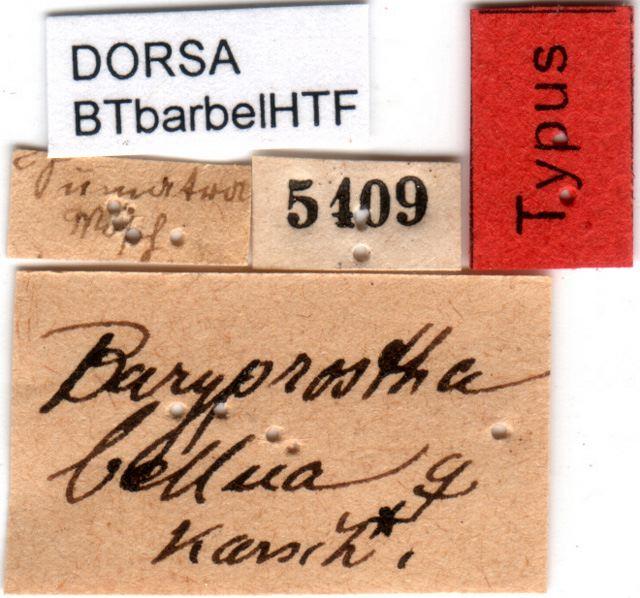 DORSA
BTbarbelHTF
Typus
Sumatra
5409
Baryprostha
bellua ♀
Karsch*.